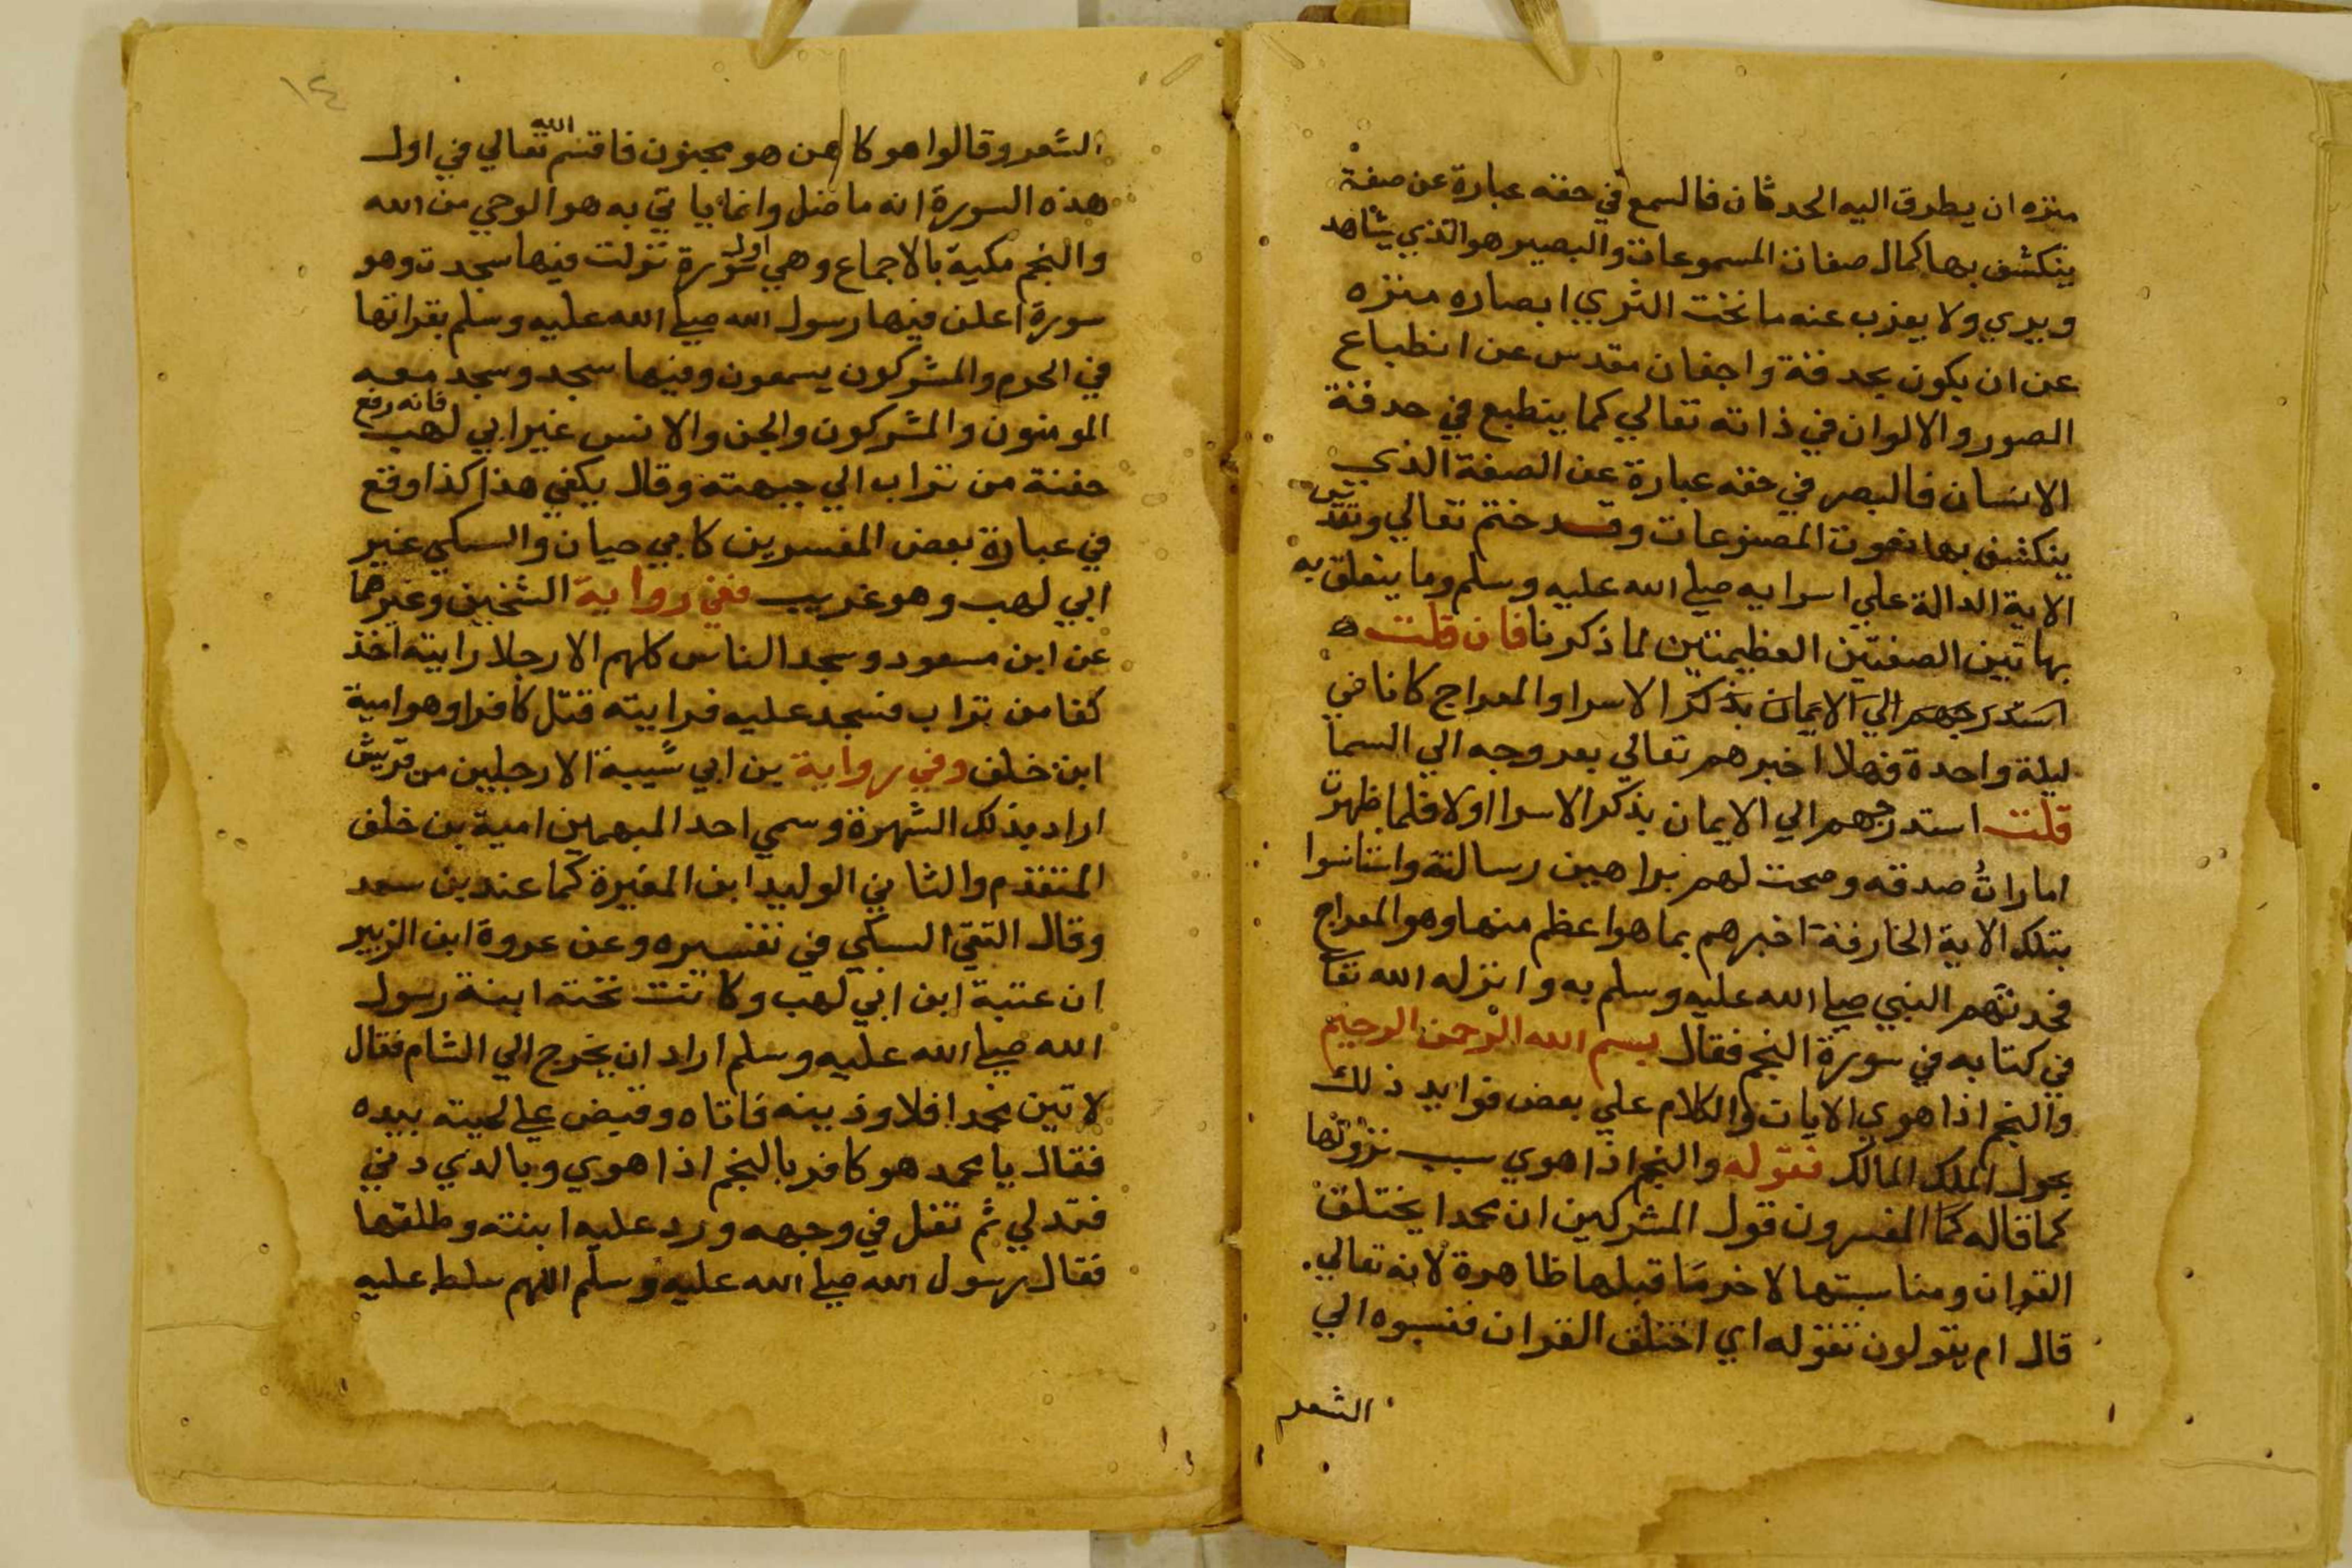 منزه ان يطرق اليه الحدثان فالسمع في حقه عبارة عن صفة
ينكشف بها كمال صفات المسموعات والبصير هو الذي يشاهد
ويري ولا يعزب عنه ما تحت الثري ابصاره منزه
عن ان يكون بحدقة واجفان مقدس عن انطباع
الصور والالوان في ذاته تعالي كما ينطبع في حدقة
الانسان فالبصر في حقه عبارة عن الصفة الذي
ينكشف بها نعوت المصنوعات وقد ختم تعالي وتقدس
الاية الدالة علي اسرايه صلي الله عليه وسلم وما يتعلق به
بهاتين الصفتين العظيمتين لما ذكرنا فان قلت
استدرجهم الي الايمان بذكر الاسرا والمعراج كانا في
ليلة واحدة فهلا اخبرهم تعالي بعروجه الي السما
قلت استدرجهم الي الايمان بذكر الاسرا اولا فلما ظهرت
امارات صدقه وصحت لهم براهين رسالته واستانسوا
بتلك الاية الخارقة اخبرهم بما هو اعظم منها وهو المعراج
فحدثهم النبي صلي الله عليه وسلم به وانزله الله تعا
في كتابه في سورة النجم فقال بسم الله الرحمن الرحيم
والنجم اذا هوي الايات والكلام علي بعض فوايد ذلك
بحول الملك المالك فقوله والنجم اذا هوي سبب نزولها
كما قاله كما المفسرون قول المشركين ان محمدا يختلق
القران ومناسبتها لاخر ما قبلها ظاهرة لانه تعالي
قال ام يقولون تقوله اي اختلق القران فنسبوه الي
الشعر
١٢٤
الشعر وقالوا هو كاهن هو مجنون فاقسم الله تعالي في اول
هذه السورة انه ما ضل وانما ياتي به هو الوحي من الله
والنجم مكية بالاجماع وهي اول سورة نزلت فيها سجدت وهو
سورة اعلن فيها رسول الله صلي الله عليه وسلم بقراتها
في الحرم والمشركون يسمعون وفيها سجد وسجد معه
المومنون والمشركون والجن والانس غير ابي لهب فانه رفع
حفنة من تراب الي جبهته وقال يكفي هذا كذا وقع
في عبارة بعض المفسرين كابي حيان والسبكي غير
ابي لهب وهو غريب ففي رواية الشخين وغيرهما
عن ابن مسعود وسجد الناس كلهم الا رجلا رايته اخذ
كفا من تراب فسجد عليه فرايته قتل كافرا وهو امية
ابن خلف وفي رواية بن ابي شيبة الا رجلين من قريش
اراد بذلك الشهرة وسمي احد المبهمين امية بن خلف
المتقدم والثاني الوليد ابن المغيرة كما عند بن سعد
وقال التقي السبكي في تفسيره وعن عروة ابن الزبير
ان عتبة ابن ابي لهب وكانت تحته ابنة رسول
الله صلي الله عليه وسلم اراد ان يخرج الي الشام فقال
لاتين محمدا فلاوذينه فاتاه وقبض علي لحيته بيده
فقال يا محمد هو كافر بالنجم اذا هوي وبالذي دني
فتدلي ثم تفل في وجهه ورد عليه ابنته وطلقها
فقال رسول الله صلي الله عليه وسلم اللهم سلط عليه